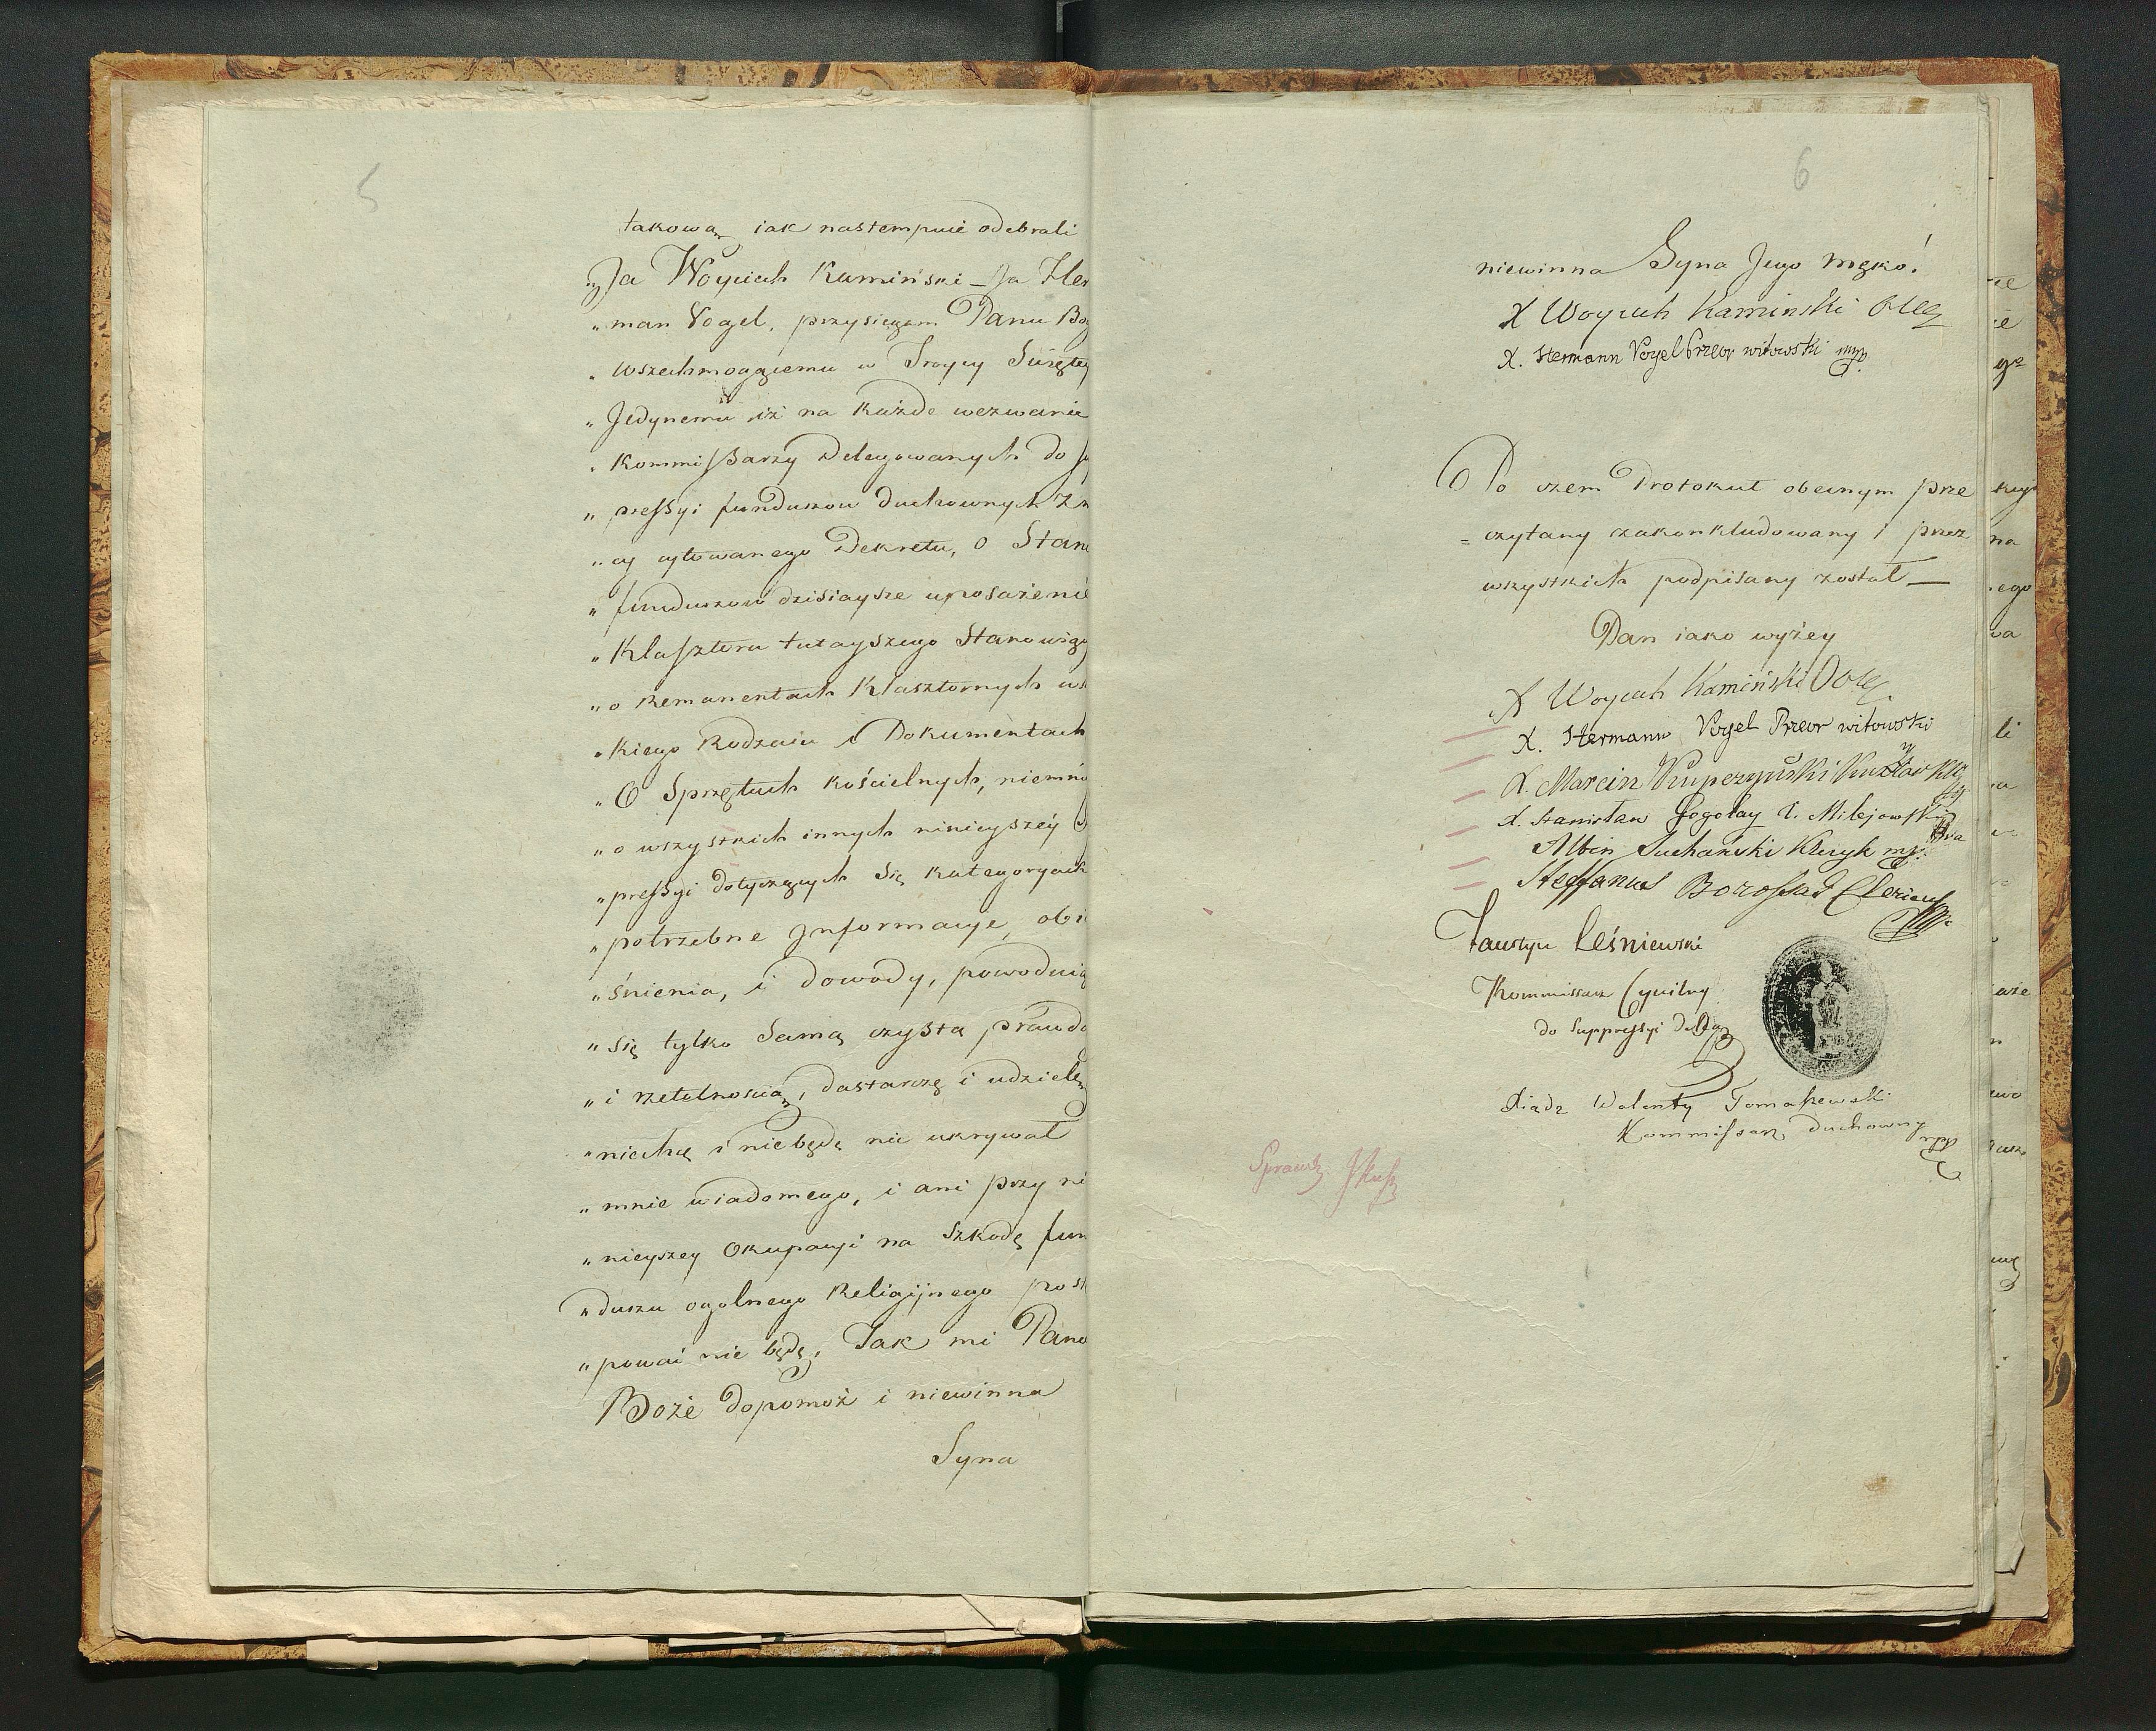 5
takową iak nastempuie odebrali
„Ja Woyciech Kamiński – Ja Her
„man Vogel, przysięgam Panu Bog
„Wszechmogącemu w Troycy Swiętey
„Jedynemu iż na każde wezwanie
„Kommissarzy Delegowanych do su
„pressyi funduszow duchownych z m
„cy cytowanego Dekretu, o Stanie
„funduszow dzisiaysze uposażenie
„Klasztoru tutayszego Stanowiący
„o Remanentach Klasztornych wsz
„kiego Rodzaiu i Dokumentach
„O Sprzętach kościelnych, niemnie
„o wszystkich innych ninieyszéy Su
„pressyi dotyczących Się kategoryach
„potrzebne Jnformacye, obia
„śnienia, i dowody, powoduiąc
„się tylko Samą czystą prawdą
„i rzetelnoscią, dostarczę i udzielę,
„niechcę i niebędę nic ukrywał
„mnie wiadomego, i ani przy ni
„nieyszey Okupacyi na Szkodę fun
„duszu ogolnego Religijnego postę
„powai nie będę, Tak mi Panie
Boże dopomoż i niewinna
Syna
6
niewinna Syna Jego męko!
X Woyciech Kaminski
X. Hermann Vogel Przeor witowski mp.
Po czem Protokuł obecnym prze
= czytany zakonkludowany i przez
wszystkich podpisany został –
Dan iako wyżey
X Woyciech Kamiński
X. Hermann Vogel Przeor witowski
X. Marcin Krupczyński
X. Stanisław Gogolay
Albin Suchański Kleryk mp.
Steffanus Clericus
Faustyn Leśniewski
Kommissarz Cywilny
do Suppressyi
Xiądz Walenty Tomaszewski
Kommissarz Duchowny mpp